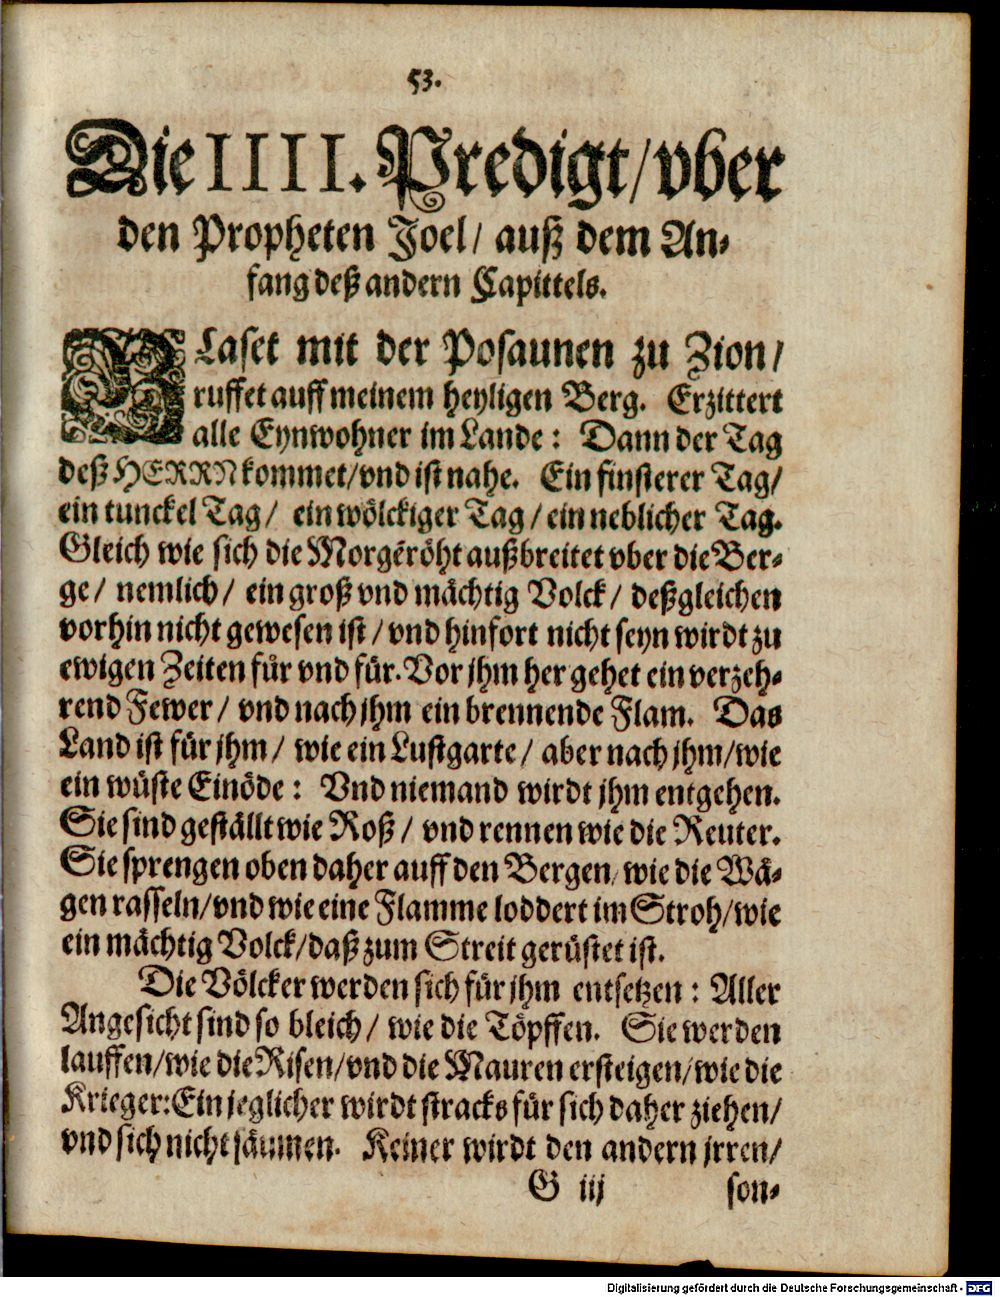 53.
Die IIII. Predigt/ vber
den Propheten Joel/ auß dem An-
fang deß andern Capittels.
BLaset mit der Posaunen zu Zion/
ruffet auff meinem heyligen Berg. Erzittert
alle Eynwohner im Lande: Dann der Tag
deß HERRN kommet/ vnd ist nahe. Ein finsterer Tag/
ein tunckel Tag/ ein wölckiger Tag/ ein neblicher Tag.
Gleich wie sich die Morgẽröht außbreitet vber die Ber-
ge/ nemlich/ ein groß vnd mächtig Volck/ deßgleichen
vorhin nicht gewesen ist/ vnd hinfort nicht seyn wirdt zu
ewigen Zeiten für vnd für. Vor jhm her gehet ein verzeh-
rend Fewer/ vnd nach jhm ein brennende Flam. Das
Land ist für jhm/ wie ein Lustgarte/ aber nach jhm/ wie
ein wüste Einöde: Vnd niemand wirdt jhm entgehen.
Sie sind geställt wie Roß/ vnd rennen wie die Reuter.
Sie sprengen oben daher auff den Bergen/ wie die Wä-
gen rasseln/ vnd wie eine Flamme loddert im Stroh/ wie
ein mächtig Volck/ daß zum Streit gerüstet ist.
Die Völcker werden sich für jhm entsetzen: Aller
Angesicht sind so bleich/ wie die Töpffen. Sie werden
lauffen/ wie die Risen/ vnd die Mauren ersteigen/ wie die
Krieger: Ein jeglicher wirdt stracks für sich daher ziehen/
vnd sich nicht säumen. Keiner wirdt den andern jrren/
G iij son-
Digitalisierung gefördert durch die Deutsche Forschungsgemeinschaft - DFG